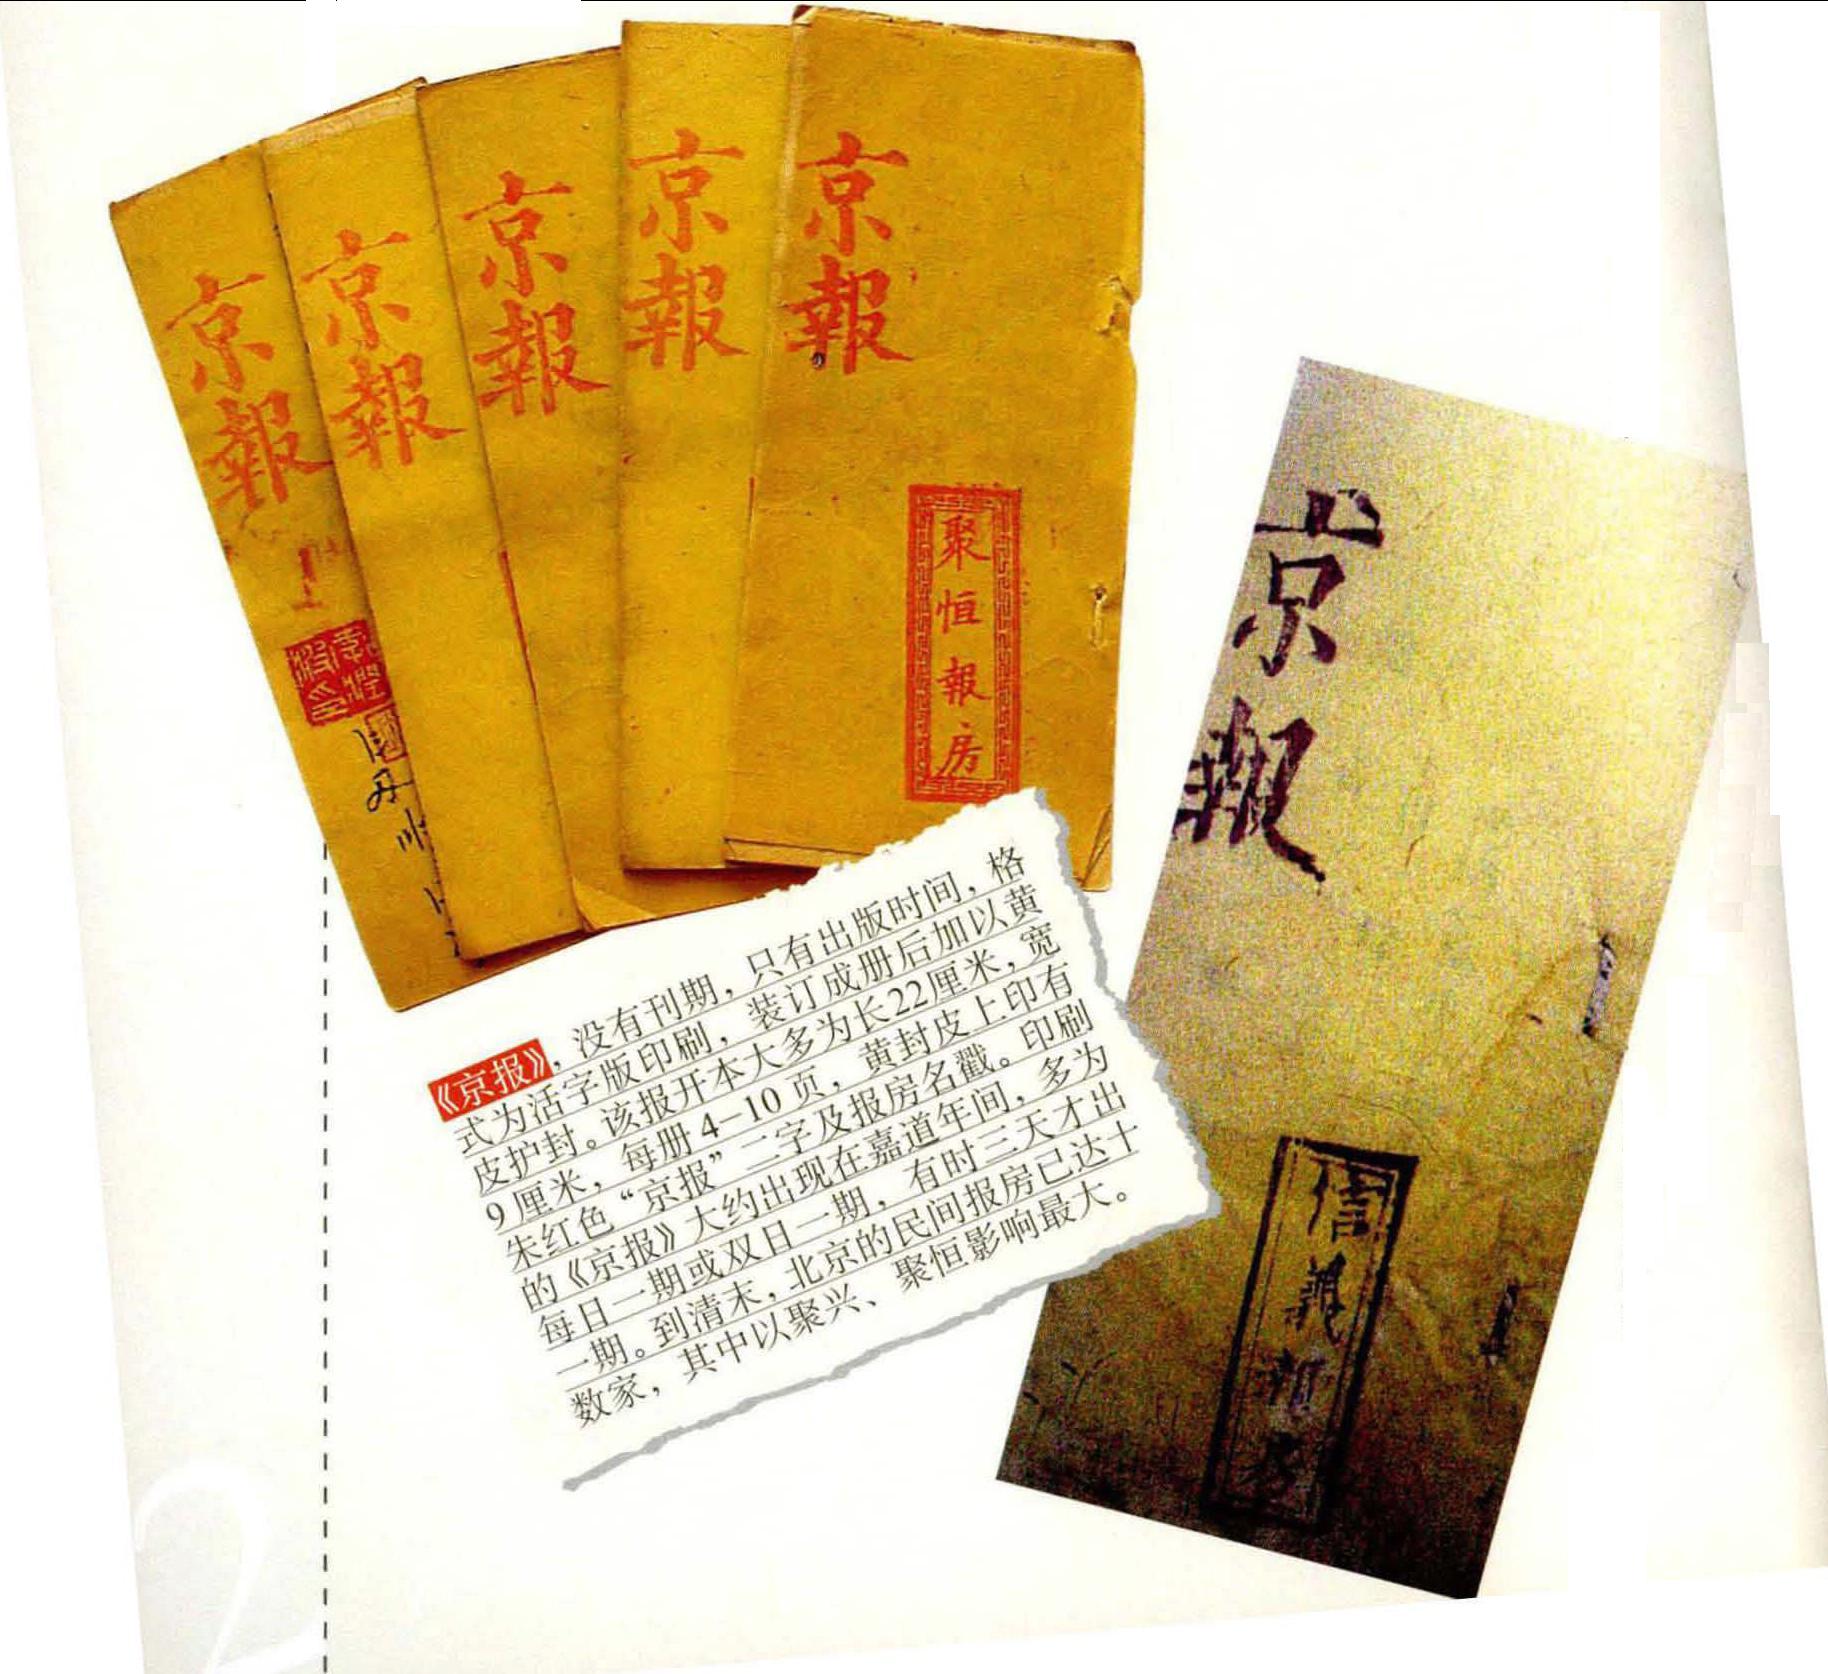 京報
京報
京報
京報
京報
聚恒報房
京報
信義報房
《京报》，没有刊期，只有出版时间，格
式为活字版印刷，装订成册后加以黄
皮护封。该报开本大多为长22厘米，宽
9厘米，每册4-10页，黄封皮上印有
朱红色“京报”二字及报房名戳。印刷
的《京报》大约出现在嘉道年间，多为
每日一期或双日一期，有时三天才出
一期。到清末，北京的民间报房已达十
数家，其中以聚兴、聚恒影响最大。
2